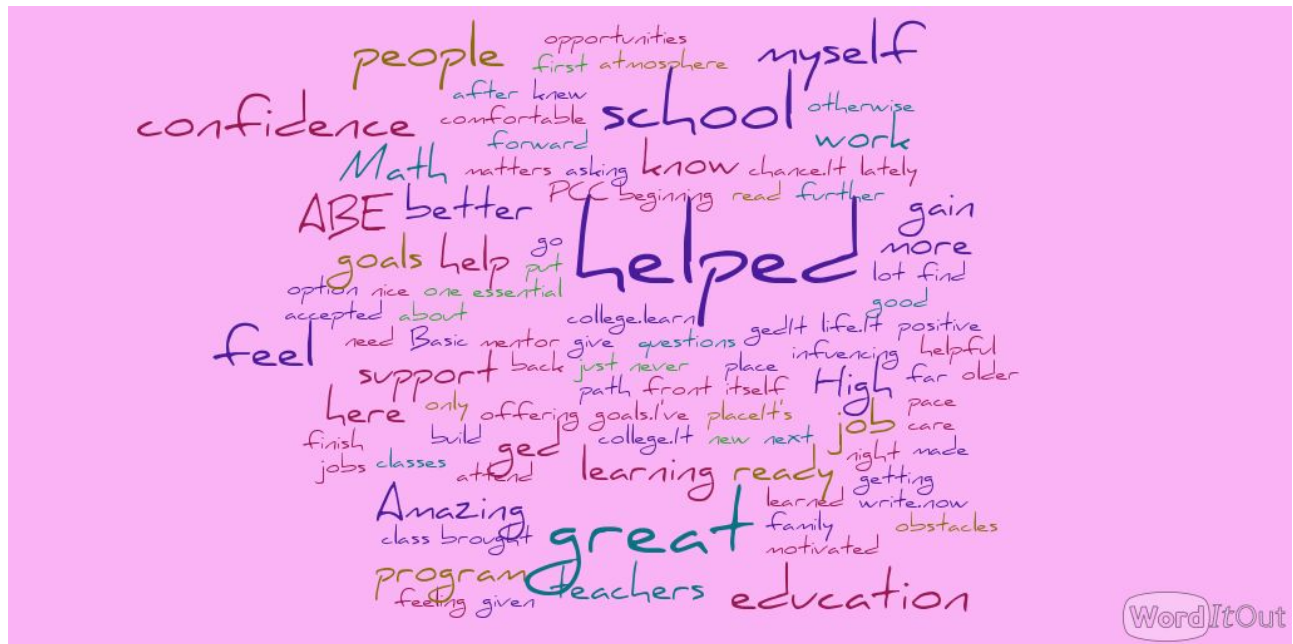 opportunities
people first atmosphere myself
after knew
confidence comfortable school otherwise
forward work
Math matters asking know chance.It lately
PCC beginning read further
ABE better gain
go more
goals help put helped lot find
option nice one essential good
accepted about college.learn
gedIt life.It positive
feel need Basic mentor give questions infuencing helpful
support back just never place High far older
path front itself
here only offering goals.I've placeIt's job pace
care
finish build ged college.It new next night made
jobs classes attend learning ready getting
learned write.now
Amazing great family obstacles
class brought motivated
program teachers education
feeling given
WordItOut